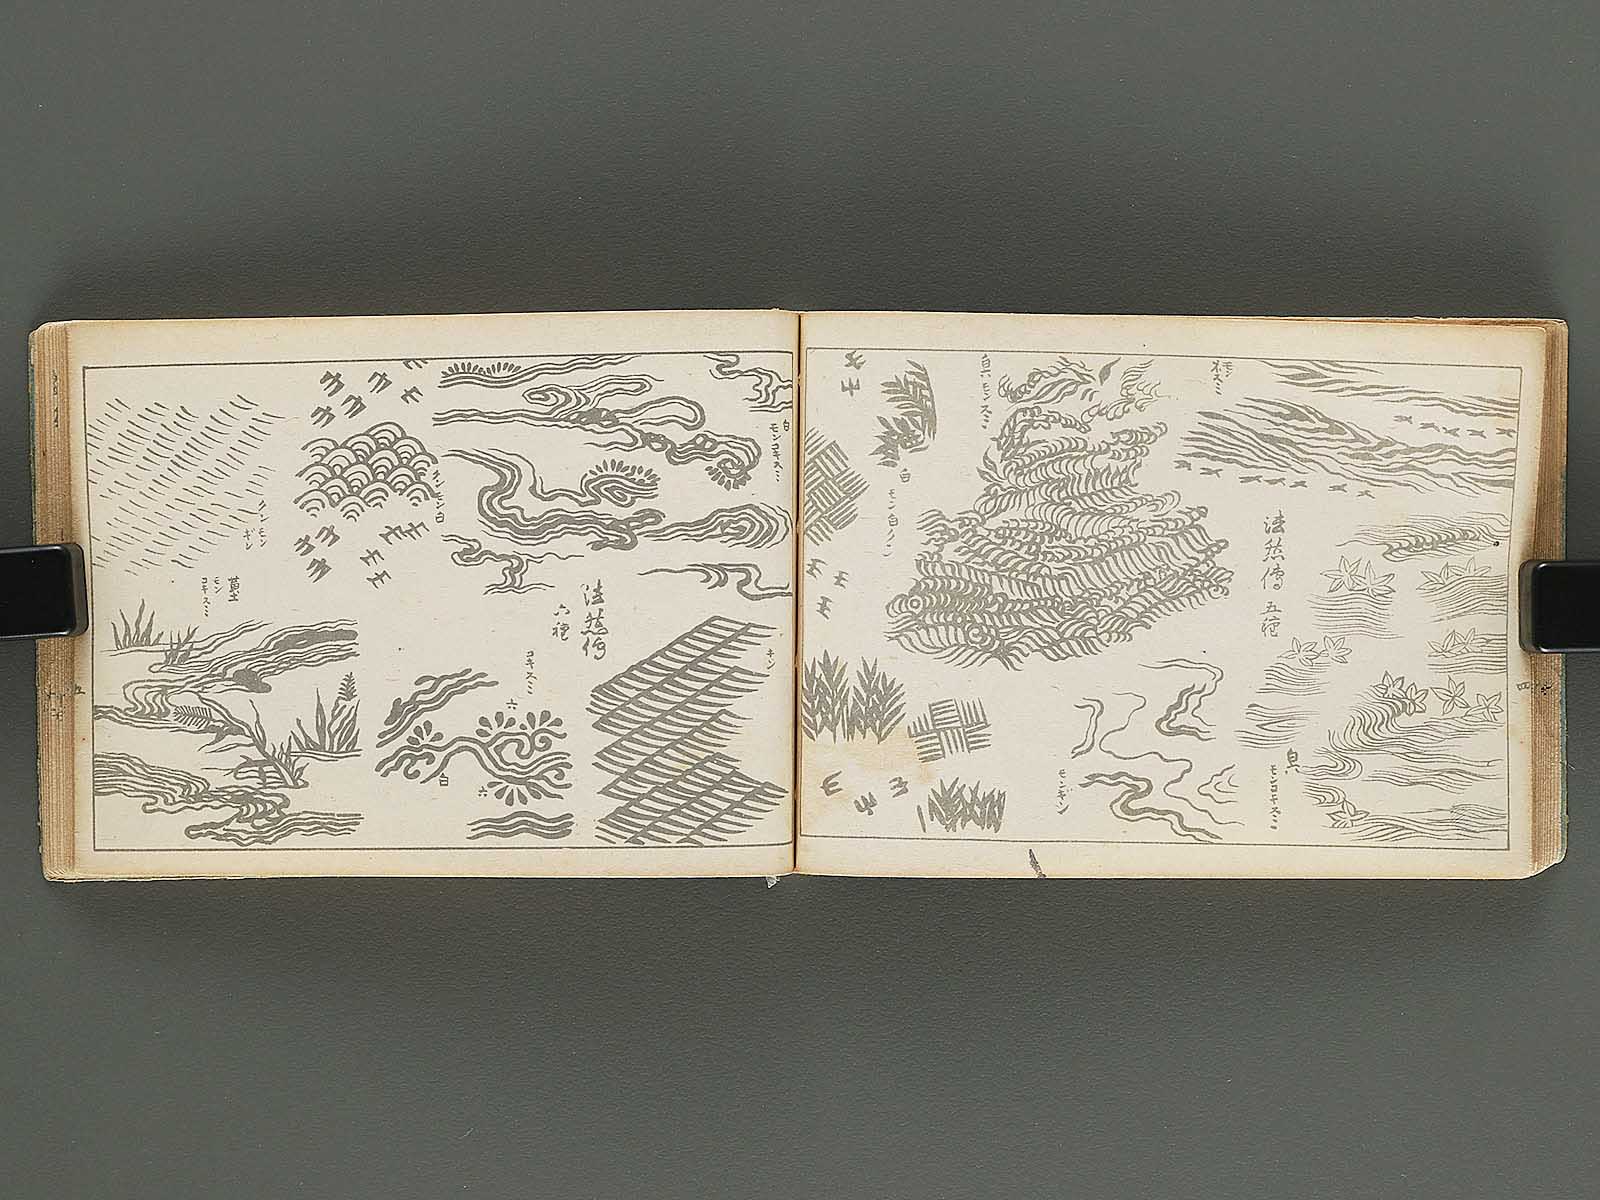 モン
ネズミ
法然傳
五種
モンコキスミ
モンギン
白
モン白クン
白
モンコキスミ
キン
法然傳
六種
コキスミ
六
白
六
クンモン白
クンモン
ギン
黄土
モン
コキスミ